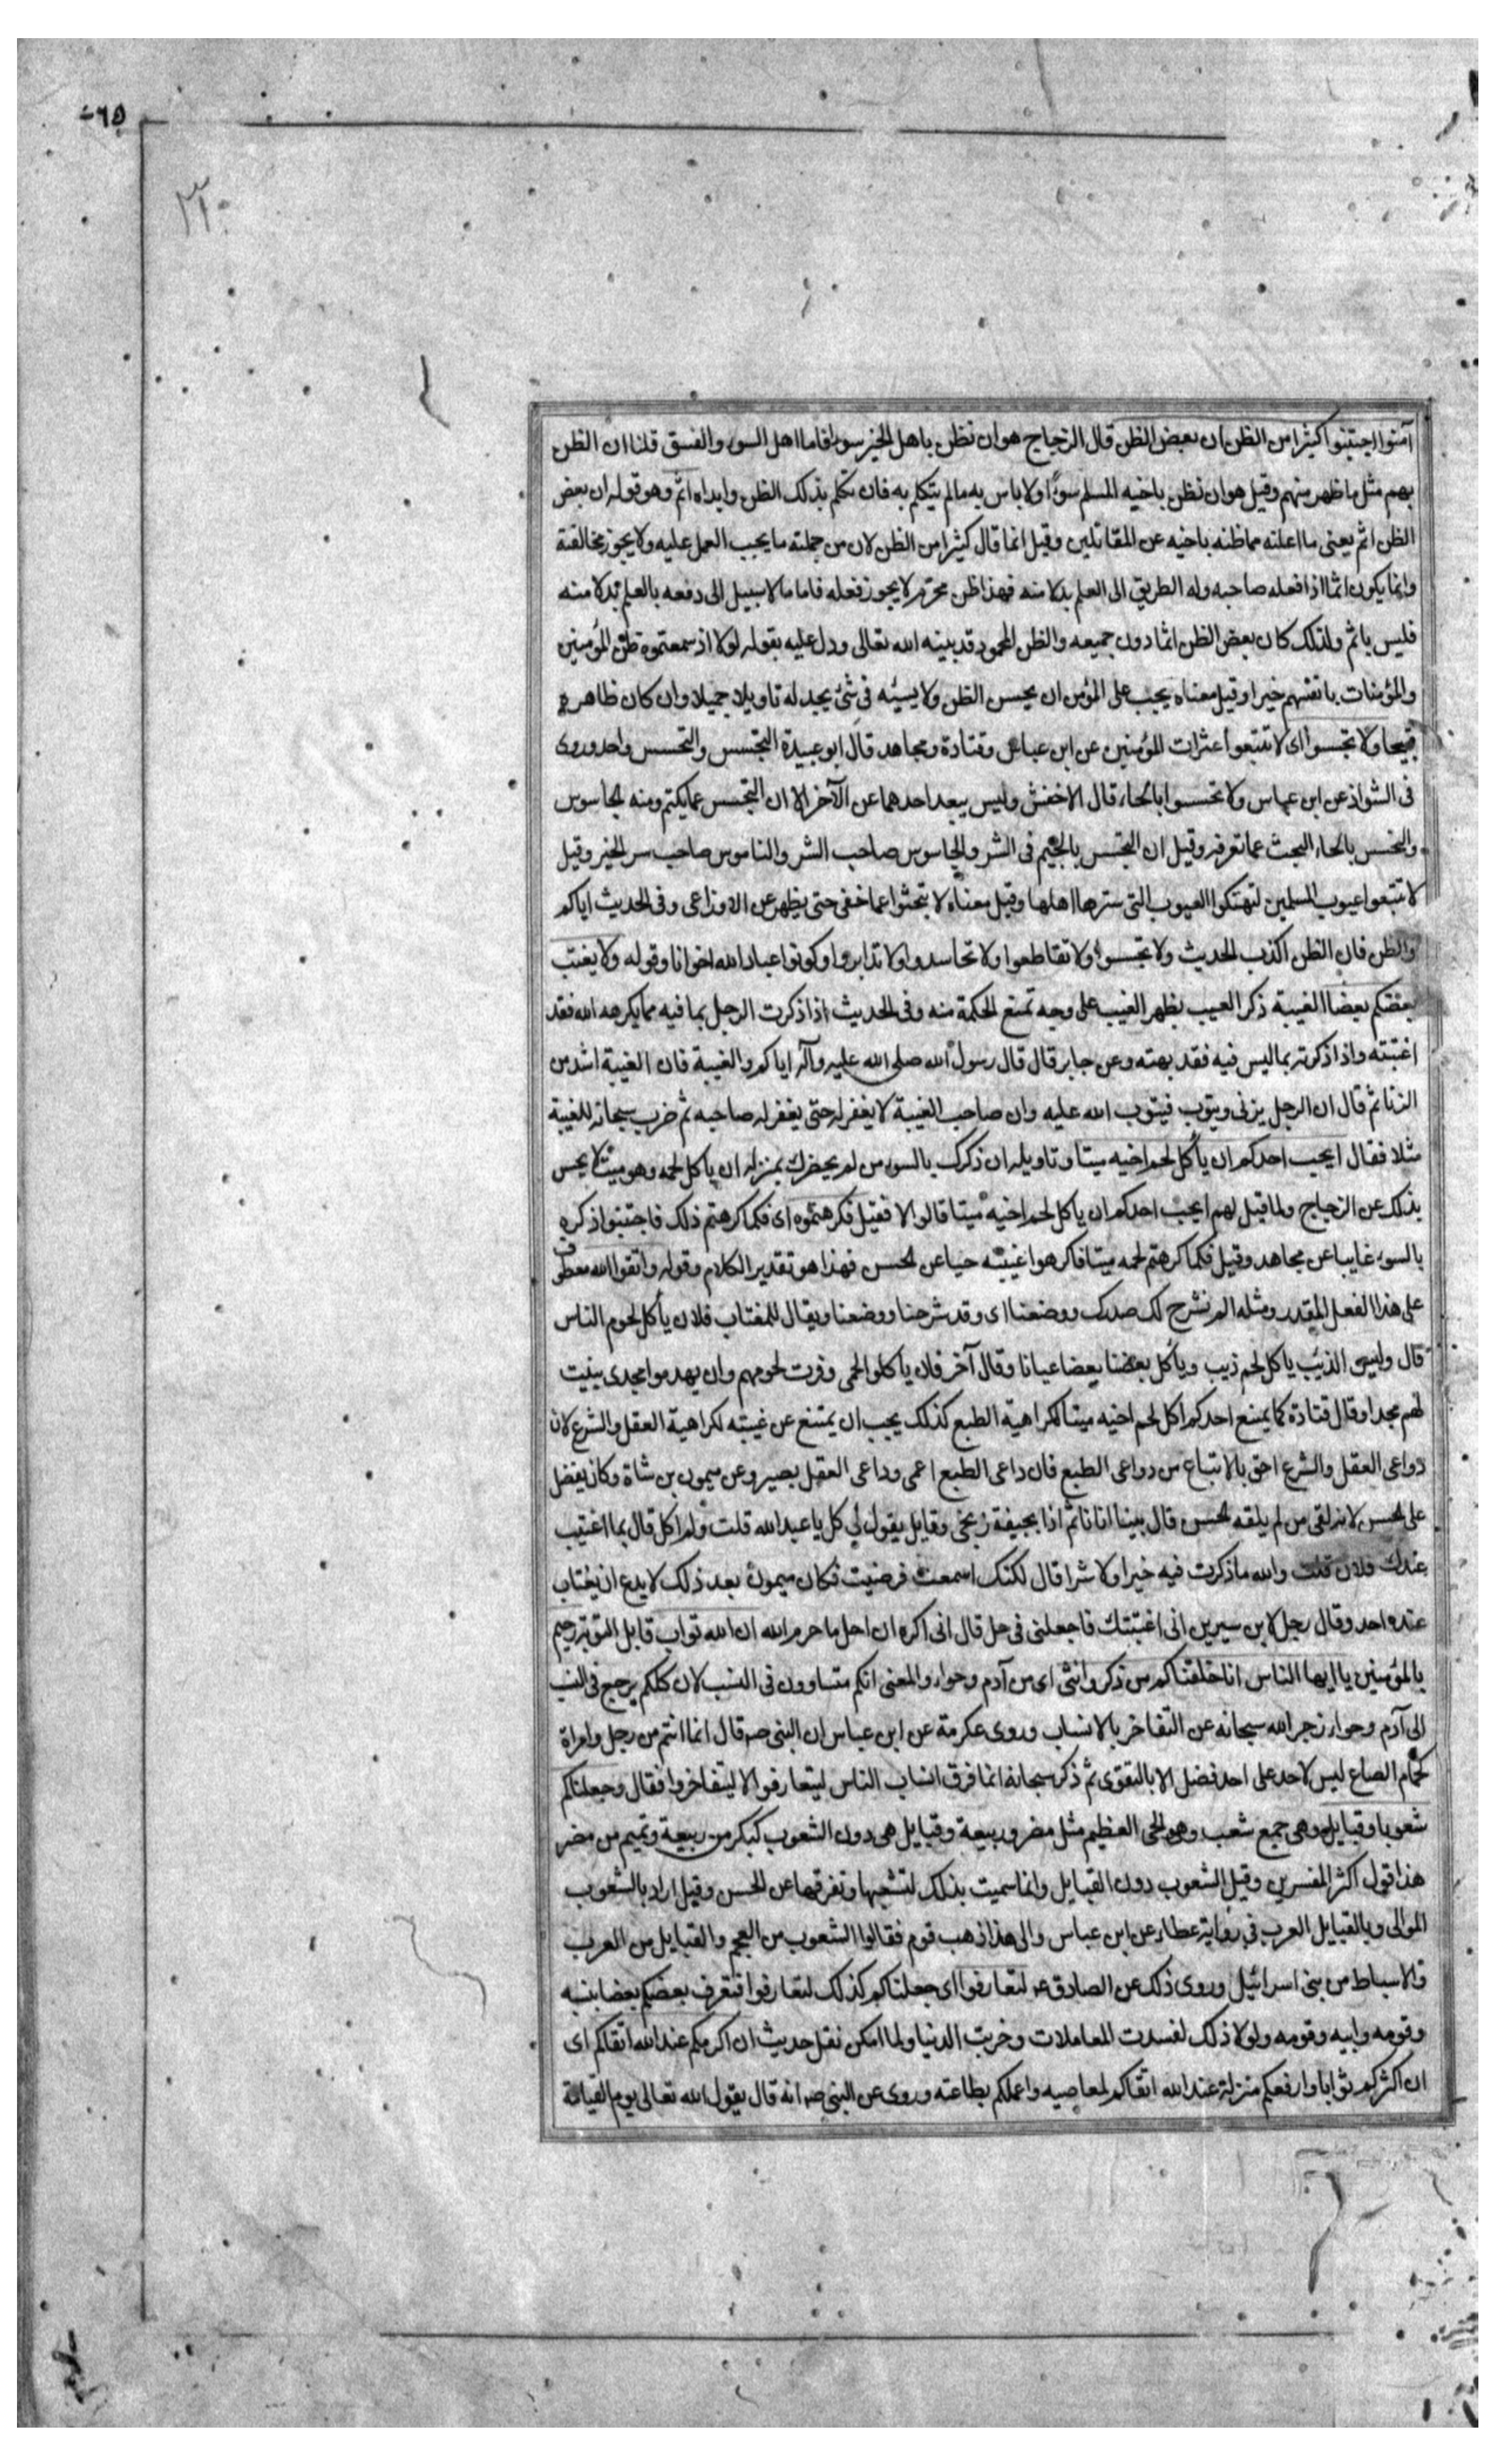 ٦٥
٣٠
آمنوا اجتنبوا كثيرا من الظن ان بعض الظن قال الزجاج هو ان نظن باهل الخير سوءا فاما اهل السوء والفسق قلنا ان الظن
بهم مثل ما ظهر منهم وقيل هو ان نظن باخيه المسلم سوءا ولا باس به مالم يتكلم به فان تكلم بذلك الظن وابداه اثم وهو قوله ان بعض
الظن اثم يعنى ما اعلنه مماظنه باخيه عن المقاتلين وقيل انما قال كثيرا من الظن لان من جملته ما يجب العمل عليه ولا يجوز مخالفته
وانما يكون اثما اذا فعله صاحبه وله الطريق الى العلم بدلا منه فهذا ظن محرم لا يجوز فعله فاما مالا سبيل الى دفعه بالعلم بدلا منه
فليس باثم ولذلك كان بعض الظن اثما دون جميعه والظن المحمود قد بينه الله تعالى ودل عليه بقوله لولا اذ سمعتموه ظن المؤمنين
والمؤمنات بانفسهم خيرا وقيل معناه يجب على المؤمن ان يحسن الظن ولا يسيئه فى شئ يجد له تاويلا جميلا وان كان ظاهره
قبيحا ولا تجسسوا اى لا تتبعوا عثرات المؤمنين عن ابن عباس وقتادة ومجاهد قال ابو عبيدة التجسس والتحسس واحد وروى
فى الشواذ عن ابن عباس ولا تحسسوا بالحاء قال الاخفش وليس يبعد احدهما عن الآخر الا ان التجسس عما يكتم ومنه الجاسوس
والتحسس بالحاء البحث عما تعرفه وقيل ان التجسس بالجيم فى الشر والجاسوس صاحب الشر والناموس صاحب سر الخير وقيل
لا تتبعوا عيوب المسلمين لتهتكوا العيوب التى سترها اهلها وقيل معناه لا تبحثوا عما خفى حتى يظهر عن الاوزاعى وفى الحديث اياكم
والظن فان الظن اكذب الحديث ولا تجسسوا ولا تقاطعوا ولا تحاسدوا ولا تدابروا وكونوا عباد الله اخوانا وقوله ولا يغتب
بعضكم بعضا الغيبة ذكر العيب بظهر الغيب على وجه تمنع الحكمة منه وفى الحديث اذا ذكرت الرجل بما فيه مما يكرهه الله فقد
اغتبته واذا ذكرته بما ليس فيه فقد بهته وعن جابر قال قال رسول الله صلى الله عليه وآله اياكم والغيبة فان الغيبة اشد من
الزنا ثم قال ان الرجل يزنى ويتوب فيتوب الله عليه وان صاحب الغيبة لا يغفر له حتى يغفر له صاحبه ثم ضرب سبحانه للغيبة
مثلا فقال ايحب احدكم ان يأكل لحم اخيه ميتا وتاويله ان ذكرك بالسوء من لم يحضرك بمنزلة ان يأكل لحمه وهو ميت لا يحس
بذلك عن الزجاج ولما قيل لهم ايحب احدكم ان ياكل لحم اخيه ميتا قالوا لا فقيل فكرهتموه اى فكما كرهتم ذلك فاجتنبوا ذكره
بالسوء غايبا عن مجاهد وقيل فكما كرهتم لحمه ميتا فاكرهوا غيبته حيا عن الحسن فهذا هو تقدير الكلام وقوله واتقوا الله معطوف
على هذا الفعل المقدر ومثله الم نشرح لك صدرك ووضعنا اى وقد شرحنا ووضعنا ويقال للمغتاب فلان يأكل لحوم الناس
قال وليس الذئب ياكل لحم ذيب ويأكل بعضنا بعضا عيانا وقال آخر فان ياكلوا لحمى وفرت لحومهم وان يهدموا مجدى بنيت
لهم مجدا وقال قتادة كما يمتنع احدكم اكل لحم اخيه ميتا لكراهية الطبع كذلك يجب ان يمتنع عن غيبته لكراهية العقل والشرع لان
دواعى العقل والشرع احق بالاتباع من دواعى الطبع فان داعى الطبع اعمى وداعى العقل بصير وعن ميمون بن شاة وكان يفضل
على الحسن لانه لقى من لم يلقه الحسن قال بينا انا نائم اذا بجيفة زنجى وقايل يقول لى كل يا عبد الله قلت ولم اكل قال بما اغتيب
عندك فلان قلت والله ما ذكرت فيه خيرا ولا شرا قال لكنك استمعت فرضيت فكان ميمون بعد ذلك لا يدع ان يغتاب
عنده احد وقال رجل لابن سيرين انى اغتبتك فاجعلنى فى حل قال انى اكره ان احل ما حرم الله ان الله تواب قابل التوبة رحيم
بالمؤمنين يا ايها الناس انا خلقناكم من ذكر وانثى اى من آدم وحواء والمعنى انكم متساوون فى النسب لان كلكم يرجع فى النسب
الى آدم وحواء زجر الله سبحانه عن التفاخر بالانساب وروى عكرمة عن ابن عباس ان النبى ص قال انما انتم من رجل وامراة
كجمام الصاع ليس لاحد على احد فضل الا بالتقوى ثم ذكر سبحانه انما فرق انساب الناس ليتعارفوا لا ليتفاخروا فقال وجعلناكم
شعوبا وقبايل وهى جمع شعب وهو الحى العظيم مثل مضر وربيعة وقبايل هى دون الشعوب كبكر من ربيعة وتميم من مضر
هذا قول اكثر المفسرين وقيل الشعوب دون القبايل وانما سميت بذلك لتشعبها وتفرقها عن الحسن وقيل اراد بالشعوب
الموالى وبالقبايل العرب فى رواية عطاء عن ابن عباس والى هذا ذهب قوم فقالوا الشعوب من العجم والقبايل من العرب
والاسباط من بنى اسرائيل وروى ذلك عن الصادق ع لتعارفوا اى جعلناكم كذلك لتعارفوا فتعرف بعضكم بعضا بنسبه
وقومه وابيه وقومه ولولا ذلك لفسدت المعاملات وخربت الدنيا ولما امكن نقل حديث ان اكرمكم عند الله اتقاكم اى
ان اكثركم ثوابا وارفعكم منزلة عند الله اتقاكم لمعاصيه واعملكم بطاعته وروى عن النبى ص انه قال يقول الله تعالى يوم القيامة